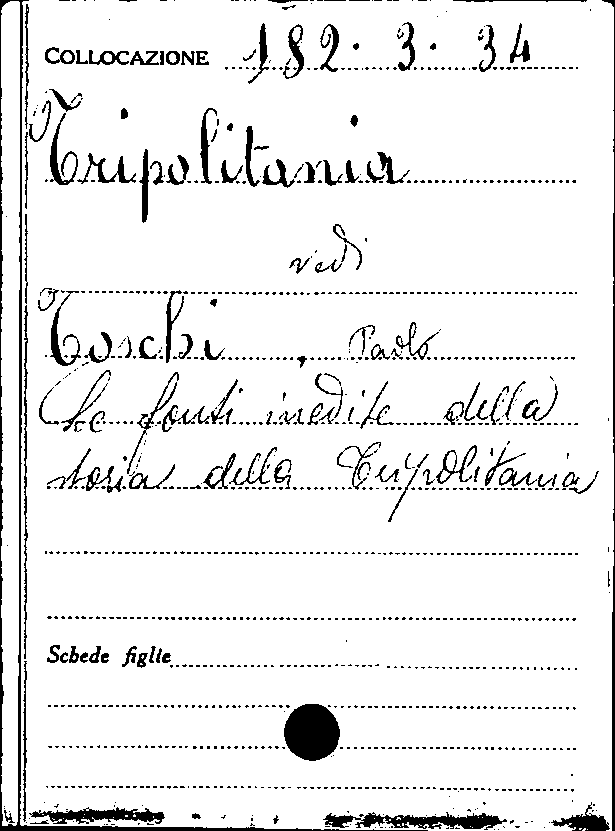 COLLOCAZIONE 182. 3. 34
Tripolitania
vedi
Toschi, Paolo
Le fonti inedite della
storia della Tripolitania
Schede figlie